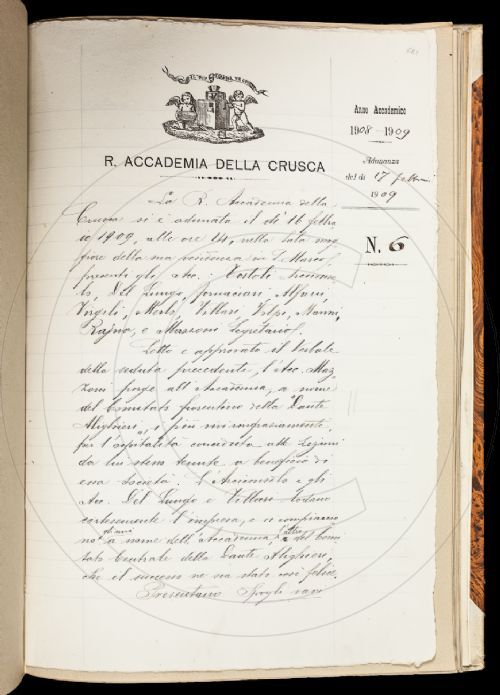 Anno Accademico
1908-1909
Adunanza
del dì 17 febbrai
1909
N. 6
R. ACCADEMIA DELLA CRUSCA
La R. Accademia della
Crusca si è adunata il dì 16 febbra
io 1909, alle ore 14, nella sala mag
giore della sua residenza in S. Marco,
presenti gli Acc.: Tortoli Arciconso
lo, Del Lungo, Fornaciari, Alfani,
Virgili, Merlo, Villari, Volpi, Vanni,
Rajna, e Mazzoni Segretario.
Letto e approvato il Verbale
della seduta precedente, l'Acc. Maz
zoni porge all'Accademia, a nome
del Comitato fiorentino della "Dante
Alighieri", i più vivi ringraziamenti,
per l'ospitalità conceduta alle lezioni
da lui stesso tenute a beneficio di
essa Società. L'Arciconsolo e gli
Acc. Del Lungo e Villari lodano
cortesemente l'impresa, e si compiaccio
no, gli uni a nome dell'Accademia, l'altro del Comi
tato Centrale della Dante Alighieri,
che il successo ne sia stato così felice.
Presentano Spogli varî